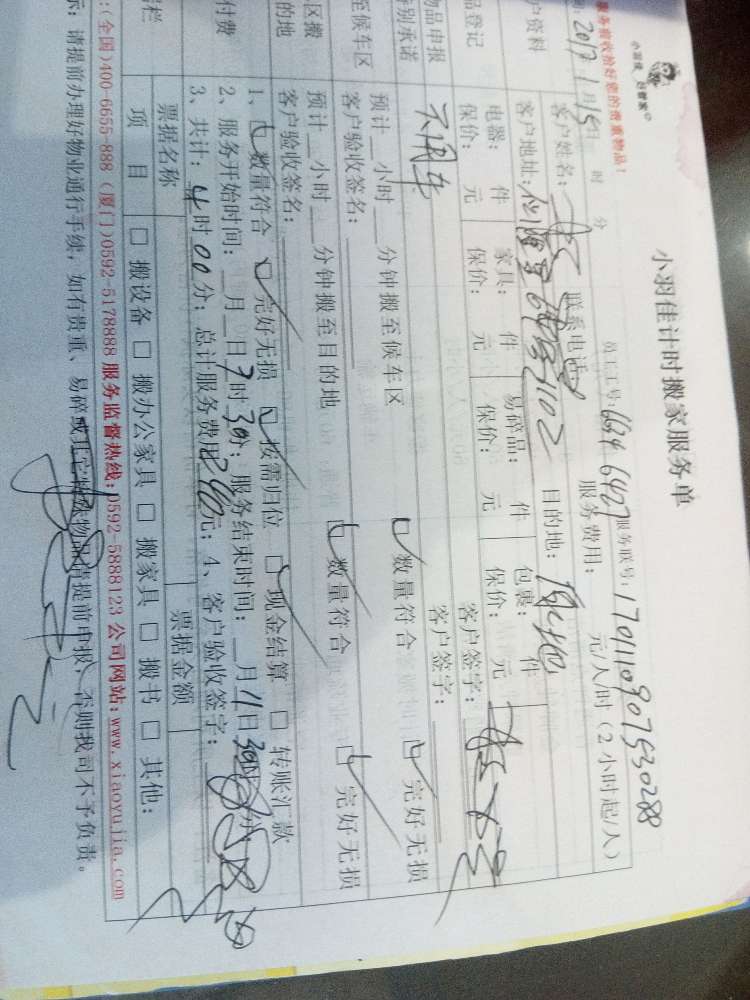 小羽佳计时搬家服务单
小羽佳 好管家®
服务前收拾好您的贵重物品！
员工工号：6624 6407 服务联号：1701110907530288
2017 1月15日 时 分 服务费用： 元/人/时（2小时起/人）
户资料 客户姓名： 联系电话
客户地址： 目的地：原地
品登记 电器： 件 家具： 件 易碎品： 件 包裹： 件 客户签字：
保价： 元 保价： 元 保价： 元 保价： 元
物品申报
特别承诺 不用车 客户签字：
至候车区 预计 小时 分钟搬至候车区 数量符合 完好无损
客户验收签名：
区搬 预计 小时 分钟搬至目的地 数量符合 完好无损
的地 客户验收签名：
1、数量符合 完好无损 按需归位 现金结算 转账汇款
付费 2、服务开始时间： 月 日7时30分；服务结束时间： 月 日11时30分；
3、共计：4时00分；总计服务费用240元；4、客户验收签字：
栏 票据名称 票据金额
项 目 搬设备 搬办公家具 搬家具 搬书 其他：
：(全国)400-6655-888 (厦门)0592-5178888 服务监督热线：0592-5888123 公司网站：www.xiaoyujia.com
示：请提前办理好物业通行手续，如有贵重、易碎或其它特殊物品请提前申报，否则我司不予负责。